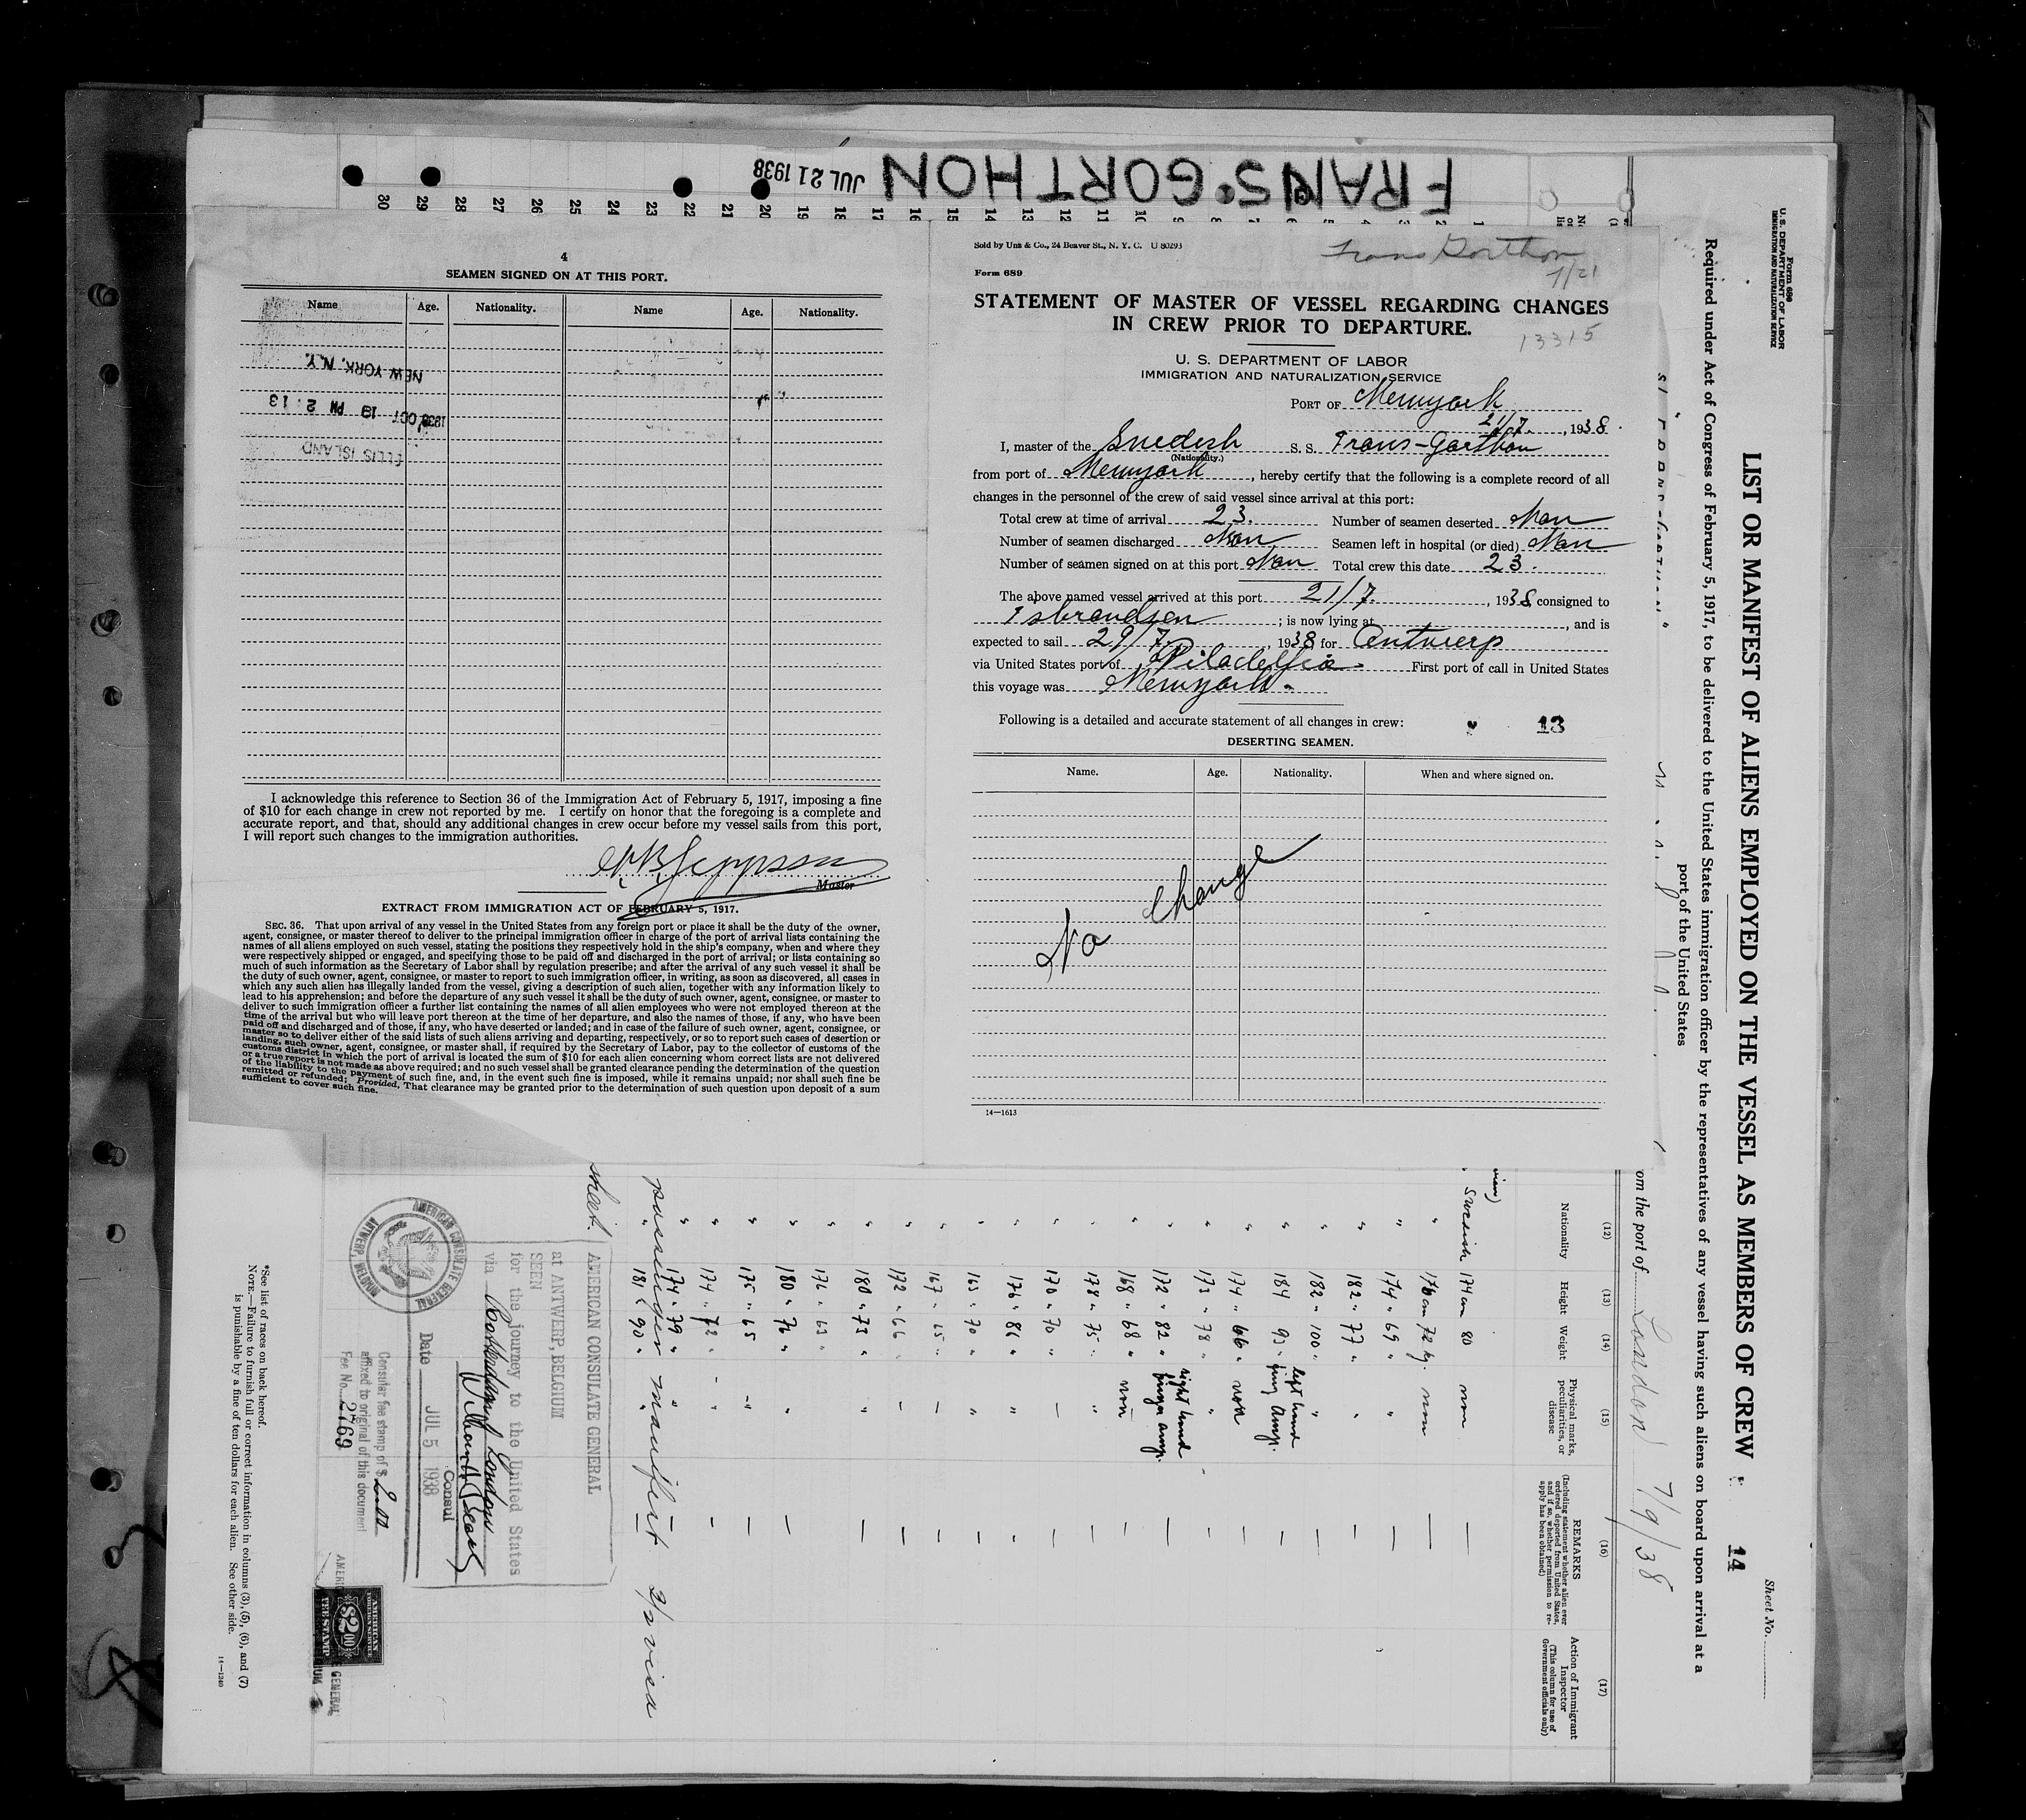 FRANS GORTHON
JUL 21 1938
30 29 28 27 26 25 24 23 22 21 20 19 18 17 16 15 14 13 12 11 10 9 8 7 6 5 4 3 2 1
4
SEAMEN SIGNED ON AT THIS PORT.
Name Age. Nationality. Name Age. Nationality.
NEW YORK, N.Y.
1938 OCT 13 PM 2:13
ELLIS ISLAND
I acknowledge this reference to Section 36 of the Immigration Act of February 5, 1917, imposing a fine
of $10 for each change in crew not reported by me. I certify on honor that the foregoing is a complete and
accurate report, and that, should any additional changes in crew occur before my vessel sails from this port,
I will report such changes to the immigration authorities.
Jeppsson
Master
EXTRACT FROM IMMIGRATION ACT OF FEBRUARY 5, 1917.
SEC. 36. That upon arrival of any vessel in the United States from any foreign port or place it shall be the duty of the owner,
agent, consignee, or master thereof to deliver to the principal immigration officer in charge of the port of arrival lists containing the
names of all aliens employed on such vessel, stating the positions they respectively hold in the ship's company, when and where they
were respectively shipped or engaged, and specifying those to be paid off and discharged in the port of arrival; or lists containing so
much of such information as the Secretary of Labor shall by regulation prescribe; and after the arrival of any such vessel it shall be
the duty of such owner, agent, consignee, or master to report to such immigration officer, in writing, as soon as discovered, all cases in
which any such alien has illegally landed from the vessel, giving a description of such alien, together with any information likely to
lead to his apprehension; and before the departure of any such vessel it shall be the duty of such owner, agent, consignee, or master to
deliver to such immigration officer a further list containing the names of all alien employees who were not employed thereon at the
time of the arrival but who will leave port thereon at the time of her departure, and also the names of those, if any, who have been
paid off and discharged and of those, if any, who have deserted or landed; and in case of the failure of such owner, agent, consignee, or
master so to deliver either of the said lists of such aliens arriving and departing, respectively, or so to report such cases of desertion or
landing, such owner, agent, consignee, or master shall, if required by the Secretary of Labor, pay to the collector of customs of the
customs district in which the port of arrival is located the sum of $10 for each alien concerning whom correct lists are not delivered
or a true report is not made as above required; and no such vessel shall be granted clearance pending the determination of the question
of the liability to the payment of such fine, and, in the event such fine is imposed, while it remains unpaid; nor shall such fine be
remitted or refunded; Provided, That clearance may be granted prior to the determination of such question upon deposit of a sum
sufficient to cover such fine.
Sold by Unz & Co., 24 Beaver St., N. Y. C. U 80293
Frans Gorthon
7/21
Form 689
STATEMENT OF MASTER OF VESSEL REGARDING CHANGES
IN CREW PRIOR TO DEPARTURE.
13315
U. S. DEPARTMENT OF LABOR
IMMIGRATION AND NATURALIZATION SERVICE
PORT OF Newyork
21/7. , 1938.
I, master of the Swedish S. S. Frans-Gorthon
(Nationality.)
from port of Newyork , hereby certify that the following is a complete record of all
changes in the personnel of the crew of said vessel since arrival at this port:
Total crew at time of arrival 23. Number of seamen deserted Non
Number of seamen discharged Non Seamen left in hospital (or died) Non
Number of seamen signed on at this port Non Total crew this date 23.
The above named vessel arrived at this port 21/7. , 1938, consigned to
Isbrandsen ; is now lying at , and is
expected to sail 29/7 , 1938 for Antwerp
via United States port of Piladelfia. First port of call in United States
this voyage was Newyork.
Following is a detailed and accurate statement of all changes in crew: 13
DESERTING SEAMEN.
Name. Age. Nationality. When and where signed on.
No Change
14—1613
Form 689
U. S. DEPARTMENT OF LABOR
IMMIGRATION AND NATURALIZATION SERVICE
Sheet No.
LIST OR MANIFEST OF ALIENS EMPLOYED ON THE VESSEL AS MEMBERS OF CREW 14
Required under Act of Congress of February 5, 1917, to be delivered to the United States immigration officer by the representatives of any vessel having such aliens on board upon arrival at a
port of the United States
om the port of London 7/9/38
(12) (13) (14) (15) (16) (17)
Nationality Height Weight Physical marks, peculiarities, or disease
REMARKS
(Including statement whether alien ever ordered deported from United States, and if so, whether permission to reapply has been obtained)
Action of Immigrant Inspector
(This column for use of Government officials only)
Swedish 174 cm 80 non —
" 176 cm 72 kg. non —
" 174 " 69 " " —
" 182 " 77 " " —
" 182 " 100 " " —
" 184 93 left hand fing amp. —
" 174 " 66 " non —
" 173 " 78 " " —
" 172 " 82 " right hand finger amp. —
" 168 " 68 " non —
" 178 " 75 " " —
" 170 " 70 " — —
" 176 " 86 " " —
" 163 " 70 " " —
" 167 " 65 " — —
" 172 " 66 " — —
" 180 " 73 " " —
" 176 " 63 "
" 180 " 76 " " —
" 175 " 65 " —
" 174 " 72 " " —
" 174 " 79 " " —
" 181 " 90 " " —
passenger manifest
visa
sheet.
AMERICAN CONSULATE GENERAL
at ANTWERP, BELGIUM
SEEN
for the journey to the United States
via Rotterdam & London
Consul
Date JUL 5 1938
AMERICAN CONSULATE GENERAL
ANTWERP, BELGIUM
Consular fee stamp of $ 2.00
affixed to original of this document
Fee No. 2769
AMERICAN
FOREIGN SERVICE
$2.00
FEE STAMP
*See list of races on back hereof.
NOTE.—Failure to furnish full or correct information in columns (3), (5), (6), and (7)
is punishable by a fine of ten dollars for each alien. See other side.
14—1240